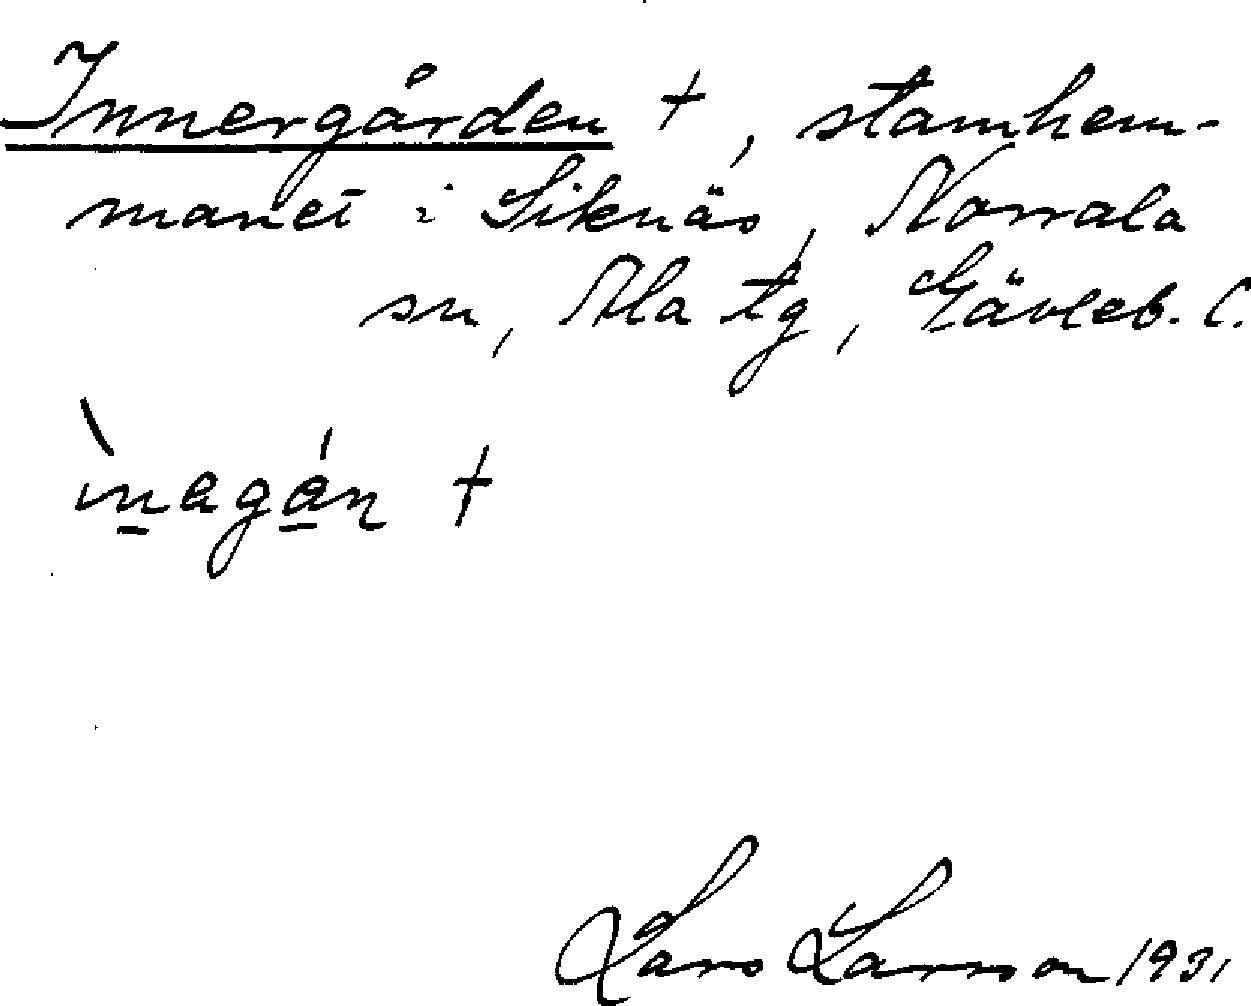 Innergården †, stamhem-
manet i Siknäs, Norrala
sn, Ala tg, Gävleb. l.
ìnagán †
Lars Larsson 1931